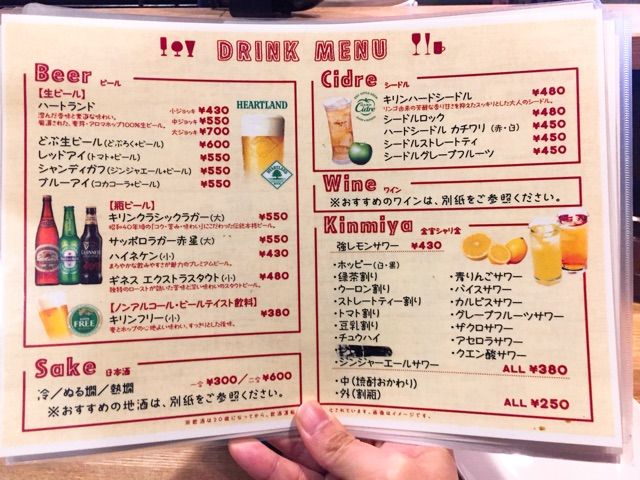 DRINK MENU
Beer ビール
【生ビール】
ハートランド
澄んだ香味と素直な味わい。
厳選された、麦芽・アロマホップ100%生ビール。
小ジョッキ ¥430
中ジョッキ ¥550
大ジョッキ ¥700
HEARTLAND
どぶ生ビール(どぶろく+ビール) ¥600
レッドアイ(トマト+ビール) ¥550
シャンディガフ(ジンジャエール+ビール) ¥550
ブルーアイ(コカコーラ+ビール) ¥550
【瓶ビール】
キリンクラシックラガー(大) ¥550
昭和40年頃の「コク・苦み・味わい」にこだわった伝統本格ビール。
サッポロラガー赤星(大) ¥550
ハイネケン(小) ¥430
まろやかな飲みやすさが魅力のプレミアムビール。
ギネス エクストラスタウト(小) ¥480
独特のローストが効いた苦味と深い味わいのスタウトビール。
GUINNESS
【ノンアルコール・ビールテイスト飲料】
キリンフリー(小) ¥380
麦とホップの心地よい味わい。すっきりとした後味。
FREE
Sake 日本酒
冷/ぬる燗/熱燗 一合 ¥300/二合 ¥600
※おすすめの地酒は、別紙をご参照ください。
Cidre シードル
キリンハードシードル ¥480
リンゴ由来の芳醇な香り甘さを抑えたスッキリとした大人のシードル。
シードルロック ¥480
ハードシードル カチワリ(赤・白) ¥450
シードルストレートティ ¥450
シードルグレープフルーツ ¥450
Cidre
Wine ワイン
※おすすめのワインは、別紙をご参照ください。
Kinmiya 金宮シャリ金
強レモンサワー ¥430
・ホッピー(白・黒)
・緑茶割り
・ウーロン割り
・ストレートティー割り
・トマト割り
・豆乳割り
・チュウハイ
・ジンジャーエールサワー
・青りんごサワー
・パイスサワー
・カルピスサワー
・グレープフルーツサワー
・ザクロサワー
・アセロラサワー
・クエン酸サワー
ALL ¥380
・中(焼酎おかわり)
・外(割瓶)
ALL ¥250
※飲酒は20歳になってから。飲酒運転
化されています。画像はイメージです。